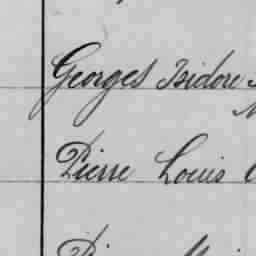 Georges Isidore
Pierre Louis